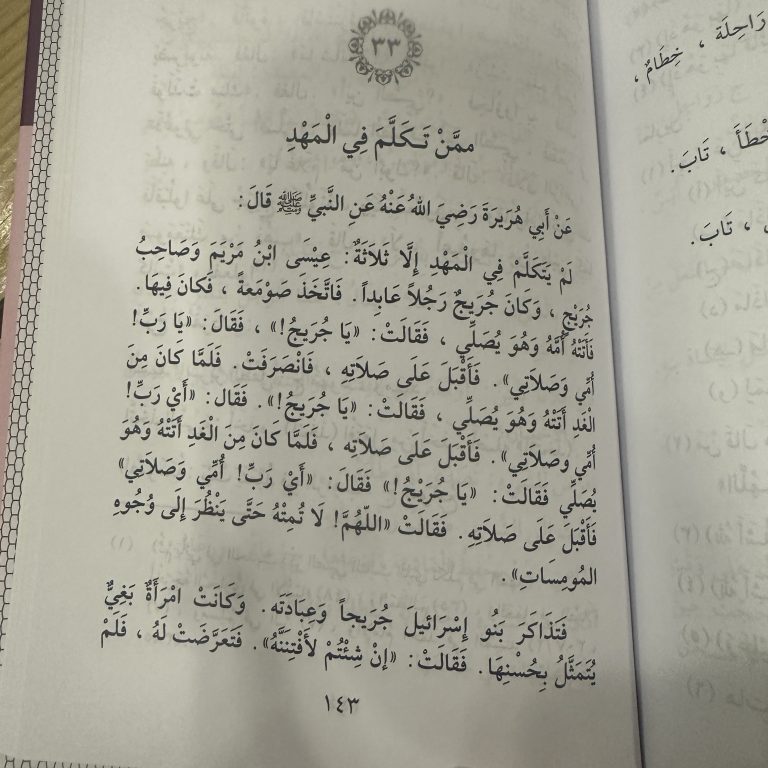 ٣٣
ممَّنْ تَكَلَّمَ فِي الْمَهْدِ
عَنْ أَبِي هُرَيرَةَ رَضِيَ اللهُ عَنْهُ عَنِ النَّبِيِّ ﷺ قَالَ:
لَمْ يَتَكَلَّمْ فِي الْمَهْدِ إِلَّا ثَلاَثَةٌ: عِيْسَى ابْنُ مَرْيَمَ وَصَاحِبُ
جُرَيْجٍ ، وَكَانَ جُرَيجٌ رَجُلاً عَابِداً. فَاتَّخَذَ صَوْمَعةً ، فَكانَ فِيهَا.
فَأَتَتْهُ أُمَّهُ وَهُوَ يُصَلِّي ، فَقَالَتْ: «يَا جُرَيجُ!» ، فَقَالَ: «يَا رَبِّ!
أُمِّي وَصَلاَتِي». فَأَقْبَلَ عَلَى صَلاَتِهِ ، فَانْصَرَفَتْ. فَلَمَّا كَانَ مِنَ
الْغَدِ أَتَتْهُ وَهُوَ يُصَلِّي ، فَقَالَتْ: «يَا جُرَيجُ!». فَقَال: «أَيْ رَبِّ!
أُمِّي وصَلاَتِي». فَأَقْبَلَ عَلَى صَلاَتِه ، فَلَمَّا كَانَ مِنَ الْغَدِ أَتَتْهُ وَهُوَ
يُصَلِّي فَقَالَتْ: «يَا جُرَيْجُ!» فَقَالَ: «أَيْ رَبِّ! أُمِّي وَصَلاَتِي»
فَأَقْبَلَ عَلَى صَلاَتِهِ. فَقَالَتْ «اللّهُمَّ! لَا تُمِتْهُ حَتَّى يَنْظُرَ إِلَى وُجُوهِ
المُومِسَاتِ».
فَتَذَاكَرَ بَنُو إِسْرَائيلَ جُرَيجاً وَعِبَادَتَه. وَكَانَتْ امْرَأَةٌ بَغِيٌّ
يُتَمَثَّلُ بِحُسْنِهَا. فَقَالَتْ: «إنْ شِئْتُمْ لأَفْتِنَنَّهُ». فَتَعَرَّضَتْ لَهُ ، فَلَمْ
١٤٣
رَاحِلَة ، خِطَامٌ ،
تَابَ.
، تَابَ.